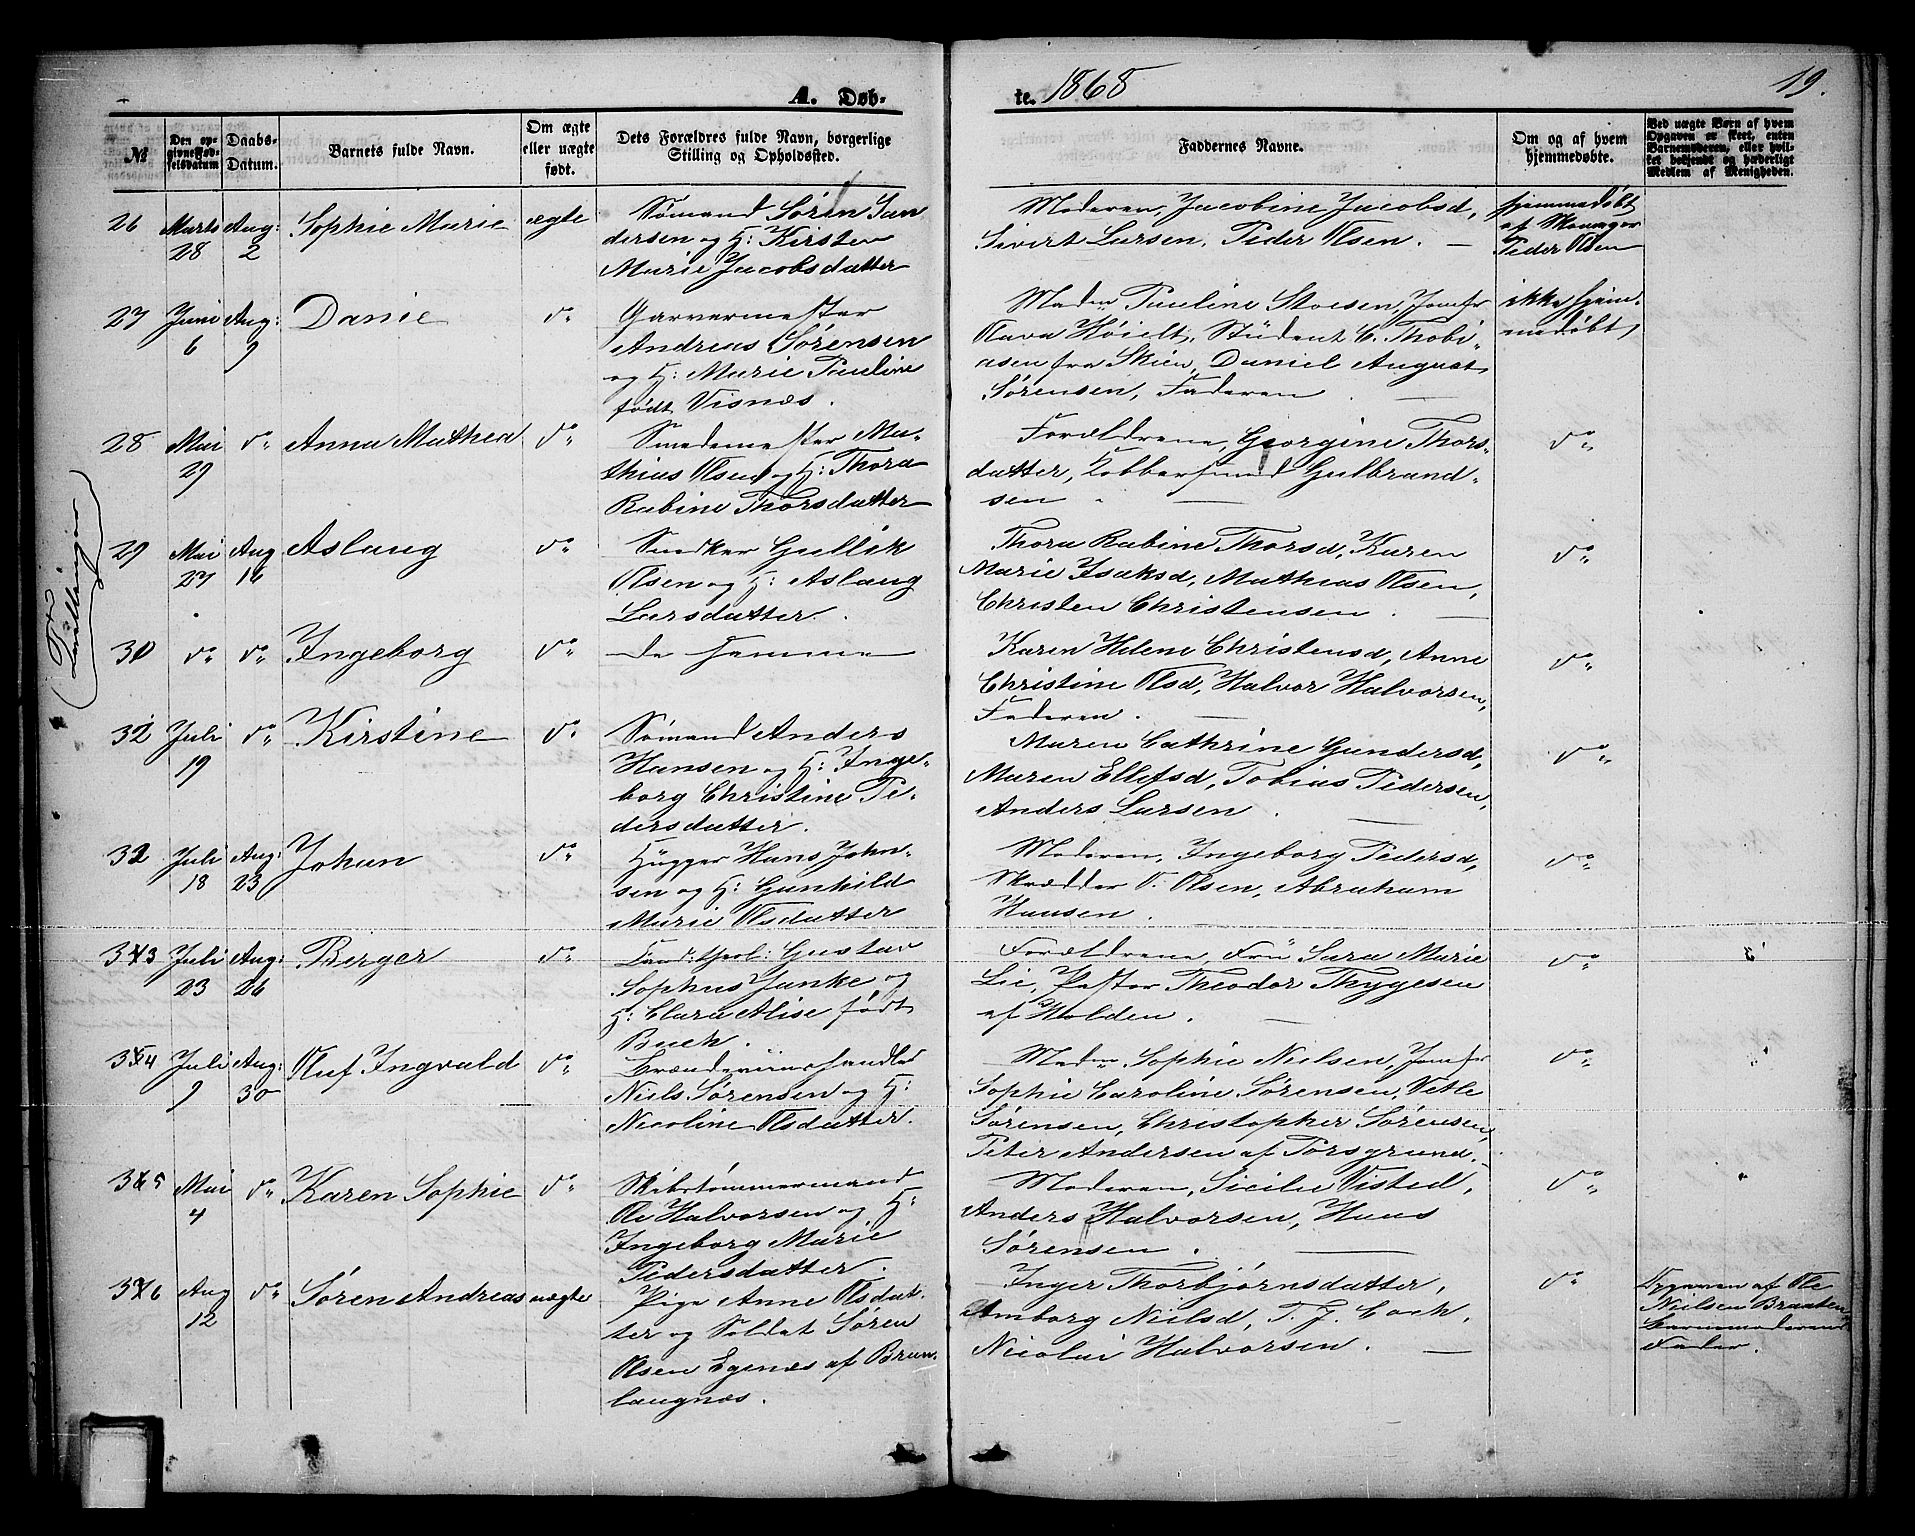 A. Døb-
te. 1868
19.
№
Den opgivne Fødselsdatum
Daabs-Datum.
Barnets fulde Navn.
Om ægte eller uægte født.
Dets Forældres fulde Navn, borgerlige Stilling og Opholdssted.
Faddernes Navne.
Om og af hvem hjemmedøbte.
Ved uægte Børn af hvem Opgaven er skeet, enten Barnemoderen, eller hvilket bekjendt og hæderligt Medlem af Menigheden.
26
Marts 28
Aug: 2
Sophie Marie
ægte
Sømand Søren San
dersen og H: Kirsten
Marie Jacobsdatter
Moderen, Jacobine Jacobsd,
Sivert Larsen, Peder Olsen.
hjemmedøbt
af Skomager
Peder Olsen
27
Juni 6
Aug: 9
Danie
do
Garvermester
Andreas Sørensen
og H: Marie Pauline
født Visnæs.
Madm Pauline Stoesen, Jomfr
Olava Høielt, Stüdent C. Thobi-
asen fra Skien, Daniel August
Sørensen, Faderen
ikke hjem-
medøbt
28
Mai 29
do
Anna Mathea
do
Smedemester Ma-
thias Olsen og H: Thora
Rabine Thorsdatter
Forældrene, Georgine Thors-
datter, Kobbersmed Gulbrand-
sen
do
Tvillinger
29
Mai 27
Aug 16
Aslaug
do
Snedker Gullik
Olsen og H: Aslaug
Larsdatter.
Thora Rabine Thorsd, Karen
Marie Isaksd, Mathias Olsen,
Christen Christensen.
do
30
do
do
Ingeborg
do
de samme
Karen Helene Christensd, Anne
Christine Olsd, Halvor Halvorsen,
Faderen.
do
32
Juli 19
do
Kirstine
do
Sømand Anders
Hansen og H: Inge-
borg Christine Pe-
dersdatter.
Maren Cathrine Gundersd,
Maren Ellefsd, Tobias Pedersen,
Anders Larsen.
do
32
Juli 18
Aug: 23
Johan
do
Hügger Hans John-
sen og H: Gunhild
Marie Olsdatter
Moderen, Ingeborg Pedersd,
Skrædder O. Olsen, Abraham
Hansen.
do
33
Juli 23
Aug: 26
Berger
do
Cand: theol: Gustav
Sophus Janke og
H: Clara Alise født
Buch.
Forældrene, Früe Sara Marie
Lie, Pastor Theodor Thygesen
af Holden.
do
34
Juli 9
Aug: 30
Oluf Ingvald
do
Brændeviinshandler
Niels Sørensen og H:
Nicoline Olsdatter.
Madm Sophie Nielsen, Jomfr
Sophie Caroline Sørensen, Vetle
Sørensen, Christopher Sørensen,
Peter Andersen af Porsgrund.
do
35
Mai 4
do
Karen Sophie
do
Skibstømmermand
Ole Halvorsen og H:
Ingeborg Marie
Pedersdatter.
Moderen, Sicilie Visted,
Anders Halvorsen, Hans
Sørensen.
do
36
Aug 12
do
Søren Andreas
uægte
Pige Anne Olsdat-
ter og Soldat Søren
Olsen Egenæs af Brun-
laugnæs.
Inger Thorbjørnsdatter,
Amborg Nielsd, T. J. Cock,
Nicolai Halvorsen.
do
Opgaven af Ole
Nielsen Braaten,
Barnemoderens
Fader.